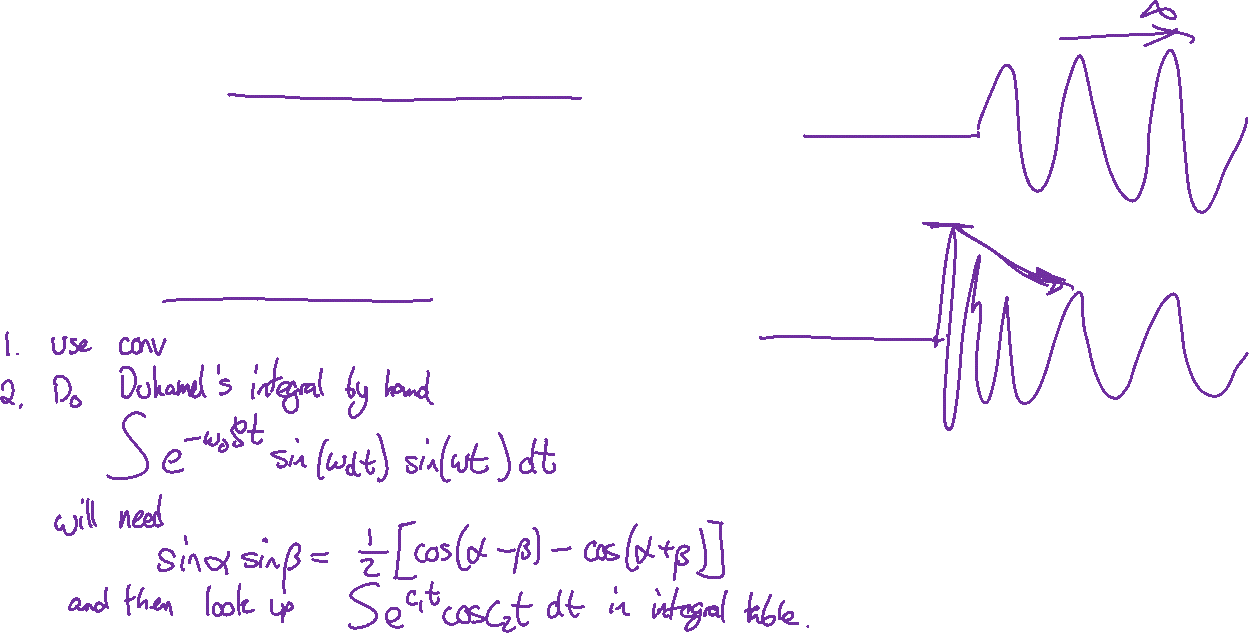 ∞
1. use conv
2. Do Duhamel's integral by hand
∫ e^{-ω₀ξt} sin(ω_d t) sin(ωt) dt
will need
sinα sinβ = 1/2 [cos(α-β) - cos(α+β)]
and then look up ∫ e^{c₁t} cos c₂t dt in integral table.